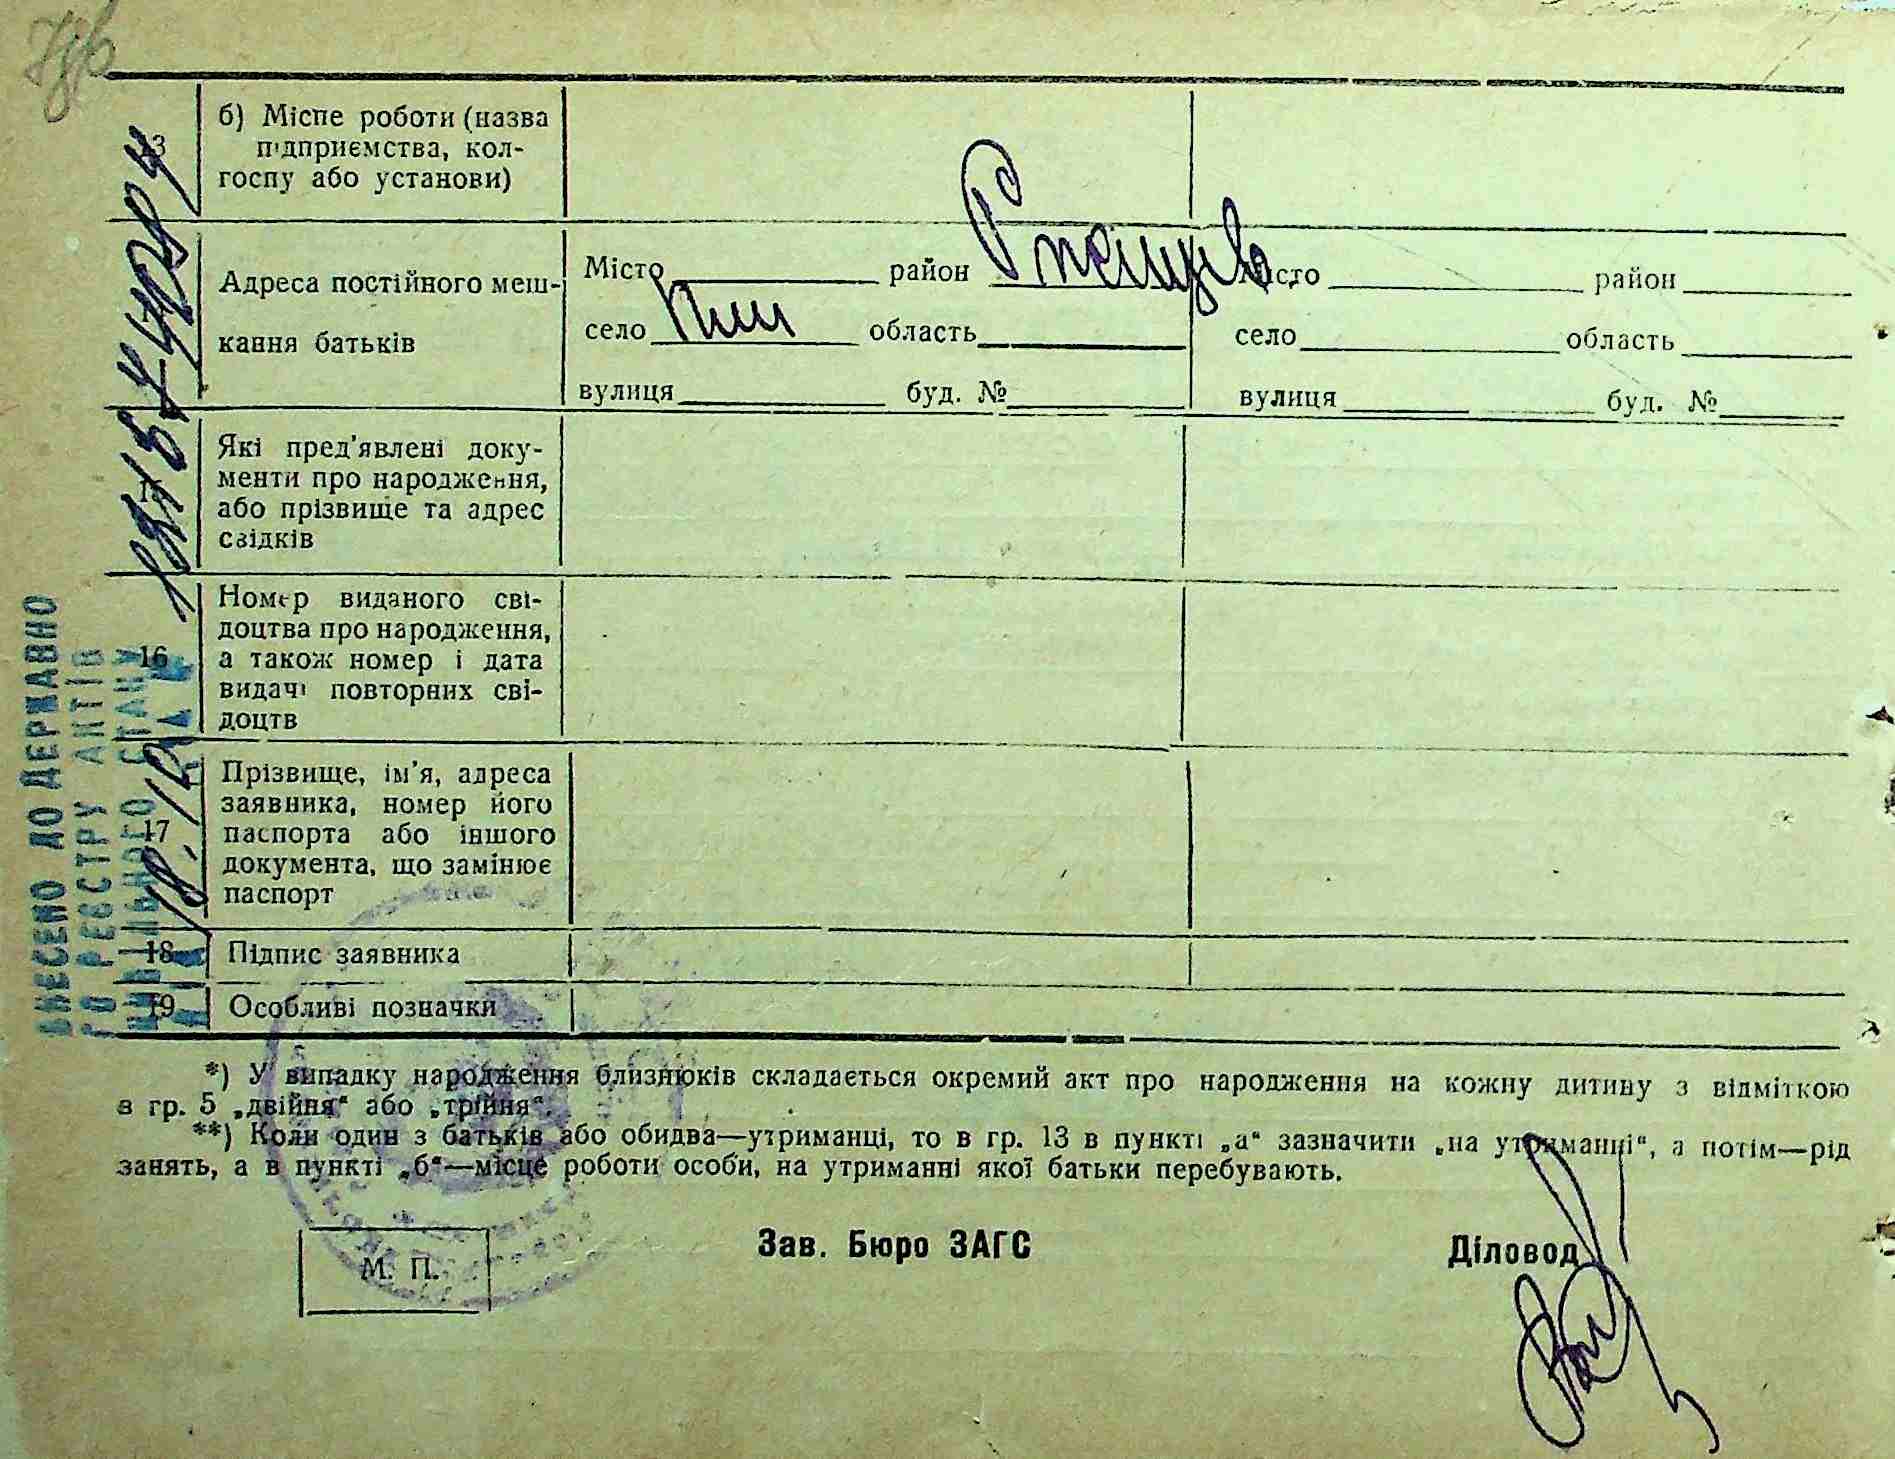 13 б) Місце роботи (назва
підприємства, кол-
госпу або установи)
Адреса постійного меш-
кання батьків
Місто район
село область
вулиця буд. №
Місто район
село область
вулиця буд. №
15 Які пред'явлені доку-
менти про народження,
або прізвище та адрес
свідків
16 Номер виданого сві-
доцтва про народження,
а також номер і дата
видачі повторних сві-
доцтв
17 Прізвище, ім'я, адреса
заявника, номер його
паспорта або іншого
документа, що замінює
паспорт
18 Підпис заявника
19 Особливі позначки
ВНЕСЕНО ДО ДЕРЖАВНО
ГО РЕЄСТРУ АКТІВ
ЦИВІЛЬНОГО СТАНУ
*) У випадку народження близнюків складається окремий акт про народження на кожну дитину з відміткою
в гр. 5 „двійня“ або „трійня“.
**) Коли один з батьків або обидва—утриманці, то в гр. 13 в пункті „а“ зазначити „на утриманні“, а потім—рід
занять, а в пункті „б“—місце роботи особи, на утриманні якої батьки перебувають.
М. П.
Зав. Бюро ЗАГС
Діловод